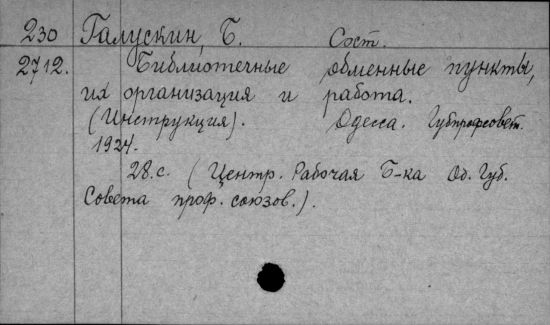 230 Галускин, Б. Сост.
2712. Библиотечные обменные пункты,
их организация и работа.
(Инструкция). Одесса. Губпрофсовет.
1924.
28.с. (Центр. Рабочая Б-ка Од. Губ.
Совета проф. союзов.).